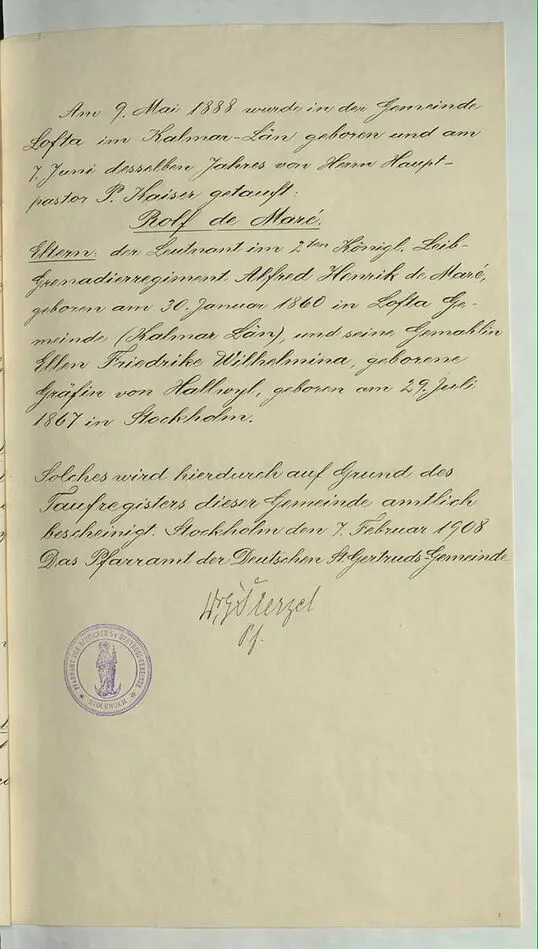 Am 9. Mai 1888 wurde in der Gemeinde
Lofta im Kalmar-Län geboren und am
7. Juni desselben Jahres von Herrn Haupt-
pastor P. Kaiser getauft:
Rolf de Maré.
Eltern: der Leutnant im 2ten Königl. Leib-
Grenadierregiment Alfred Henrik de Maré,
geboren am 30. Januar 1860 in Lofta Ge-
meinde (Kalmar Län), und seine Gemahlin
Ellen Friedrike Wilhelmina, geborene
Gräfin von Hallwyl, geboren am 29. Juli
1867 in Stockholm.
Solches wird hierdurch auf Grund des
Taufregisters dieser Gemeinde amtlich
bescheinigt. Stockholm den 7. Februar 1908
Das Pfarramt der Deutschen St. Gertruds-Gemeinde
Pf.
PFARRAMT DER DEUTSCHEN ST GERTRUDS-GEMEINDE
STOCKHOLM